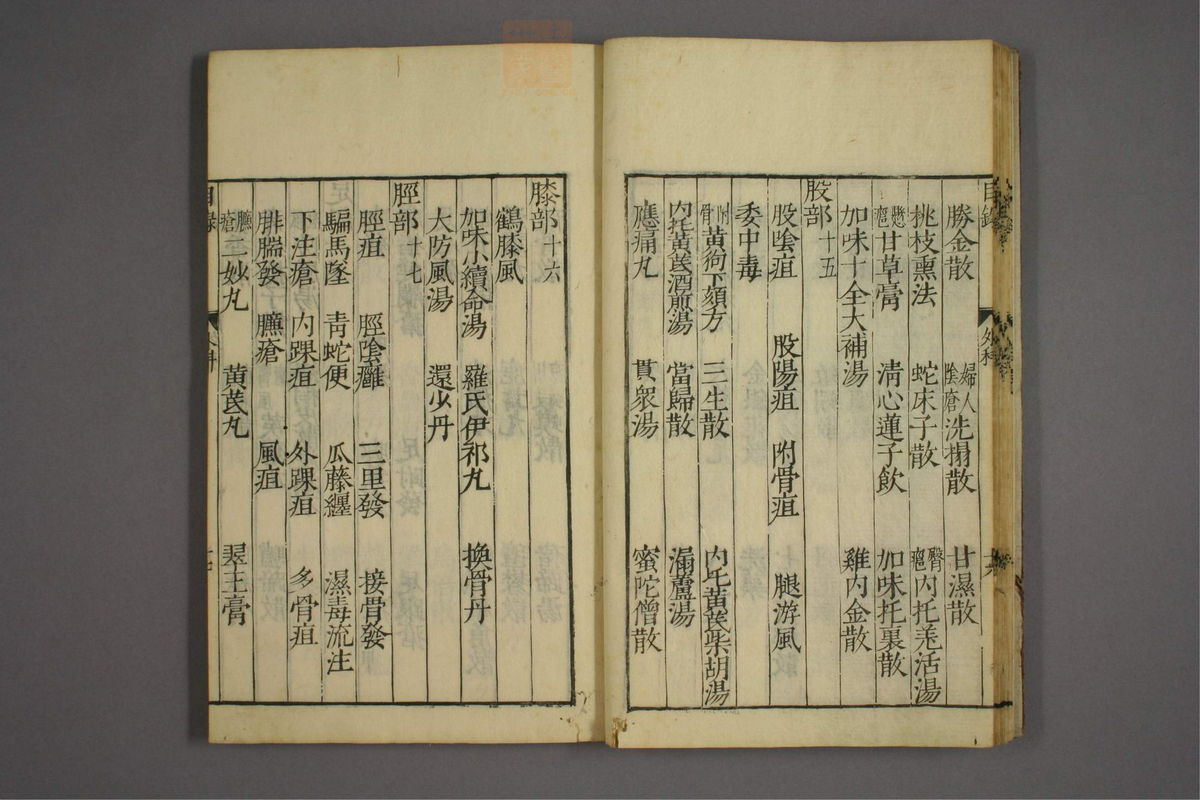 目錄 外科 十六
勝金散 婦人陰瘡洗搨散 甘濕散
桃枝熏法 蛇床子散 臀癰內托羌活湯
懸癰甘草膏 淸心蓮子飲 加味托裏散
加味十全大補湯 雞內金散
股部十五
股陰疽 股陽疽 附骨疽 腿游風
委中毒
附骨黃狗下頦方 三生散 內托黃芪柴胡湯
內托黃芪酒煎湯 當歸散 漏蘆湯
應痛丸 貫衆湯 蜜陀僧散
膝部十六
鶴膝風
加味小續命湯 羅氏伊祁丸 換骨丹
大防風湯 還少丹
脛部十七
脛疽 脛陰癰 三里發 接骨發
騙馬墜 靑蛇便 瓜藤纏 濕毒流注
下注瘡 內踝疽 外踝疽 多骨疽
腓腨發 臁瘡 風疽
臁瘡三妙丸 黃芪丸 翠玉膏
目錄